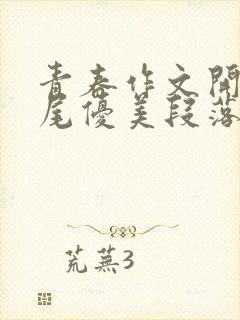 青春作文開
尾優美段落
荒蕪3